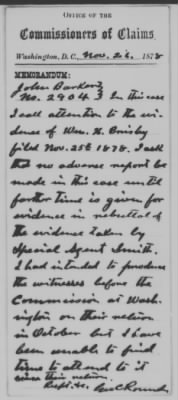 OFFICE OF THE
Commissioners of Claims,
Washington, D. C., Nov. 26, 1878
MEMORANDUM:
John Barker
No. 2904 } In this case
I call attention to the evi-
dence of Wm. H. Grigsby
filed Nov. 25th 1878. I ask
that no advance report be
made in this case until
further time is given for
evidence in rebuttal of
the evidence taken by
Special Agent Smith.
I had intended to produce
the witnesses before the
Commission at Wash-
ington on their return
in October but I have
been unable to find
time to attend to it
since their return.
Respt. &c. Geo C Round